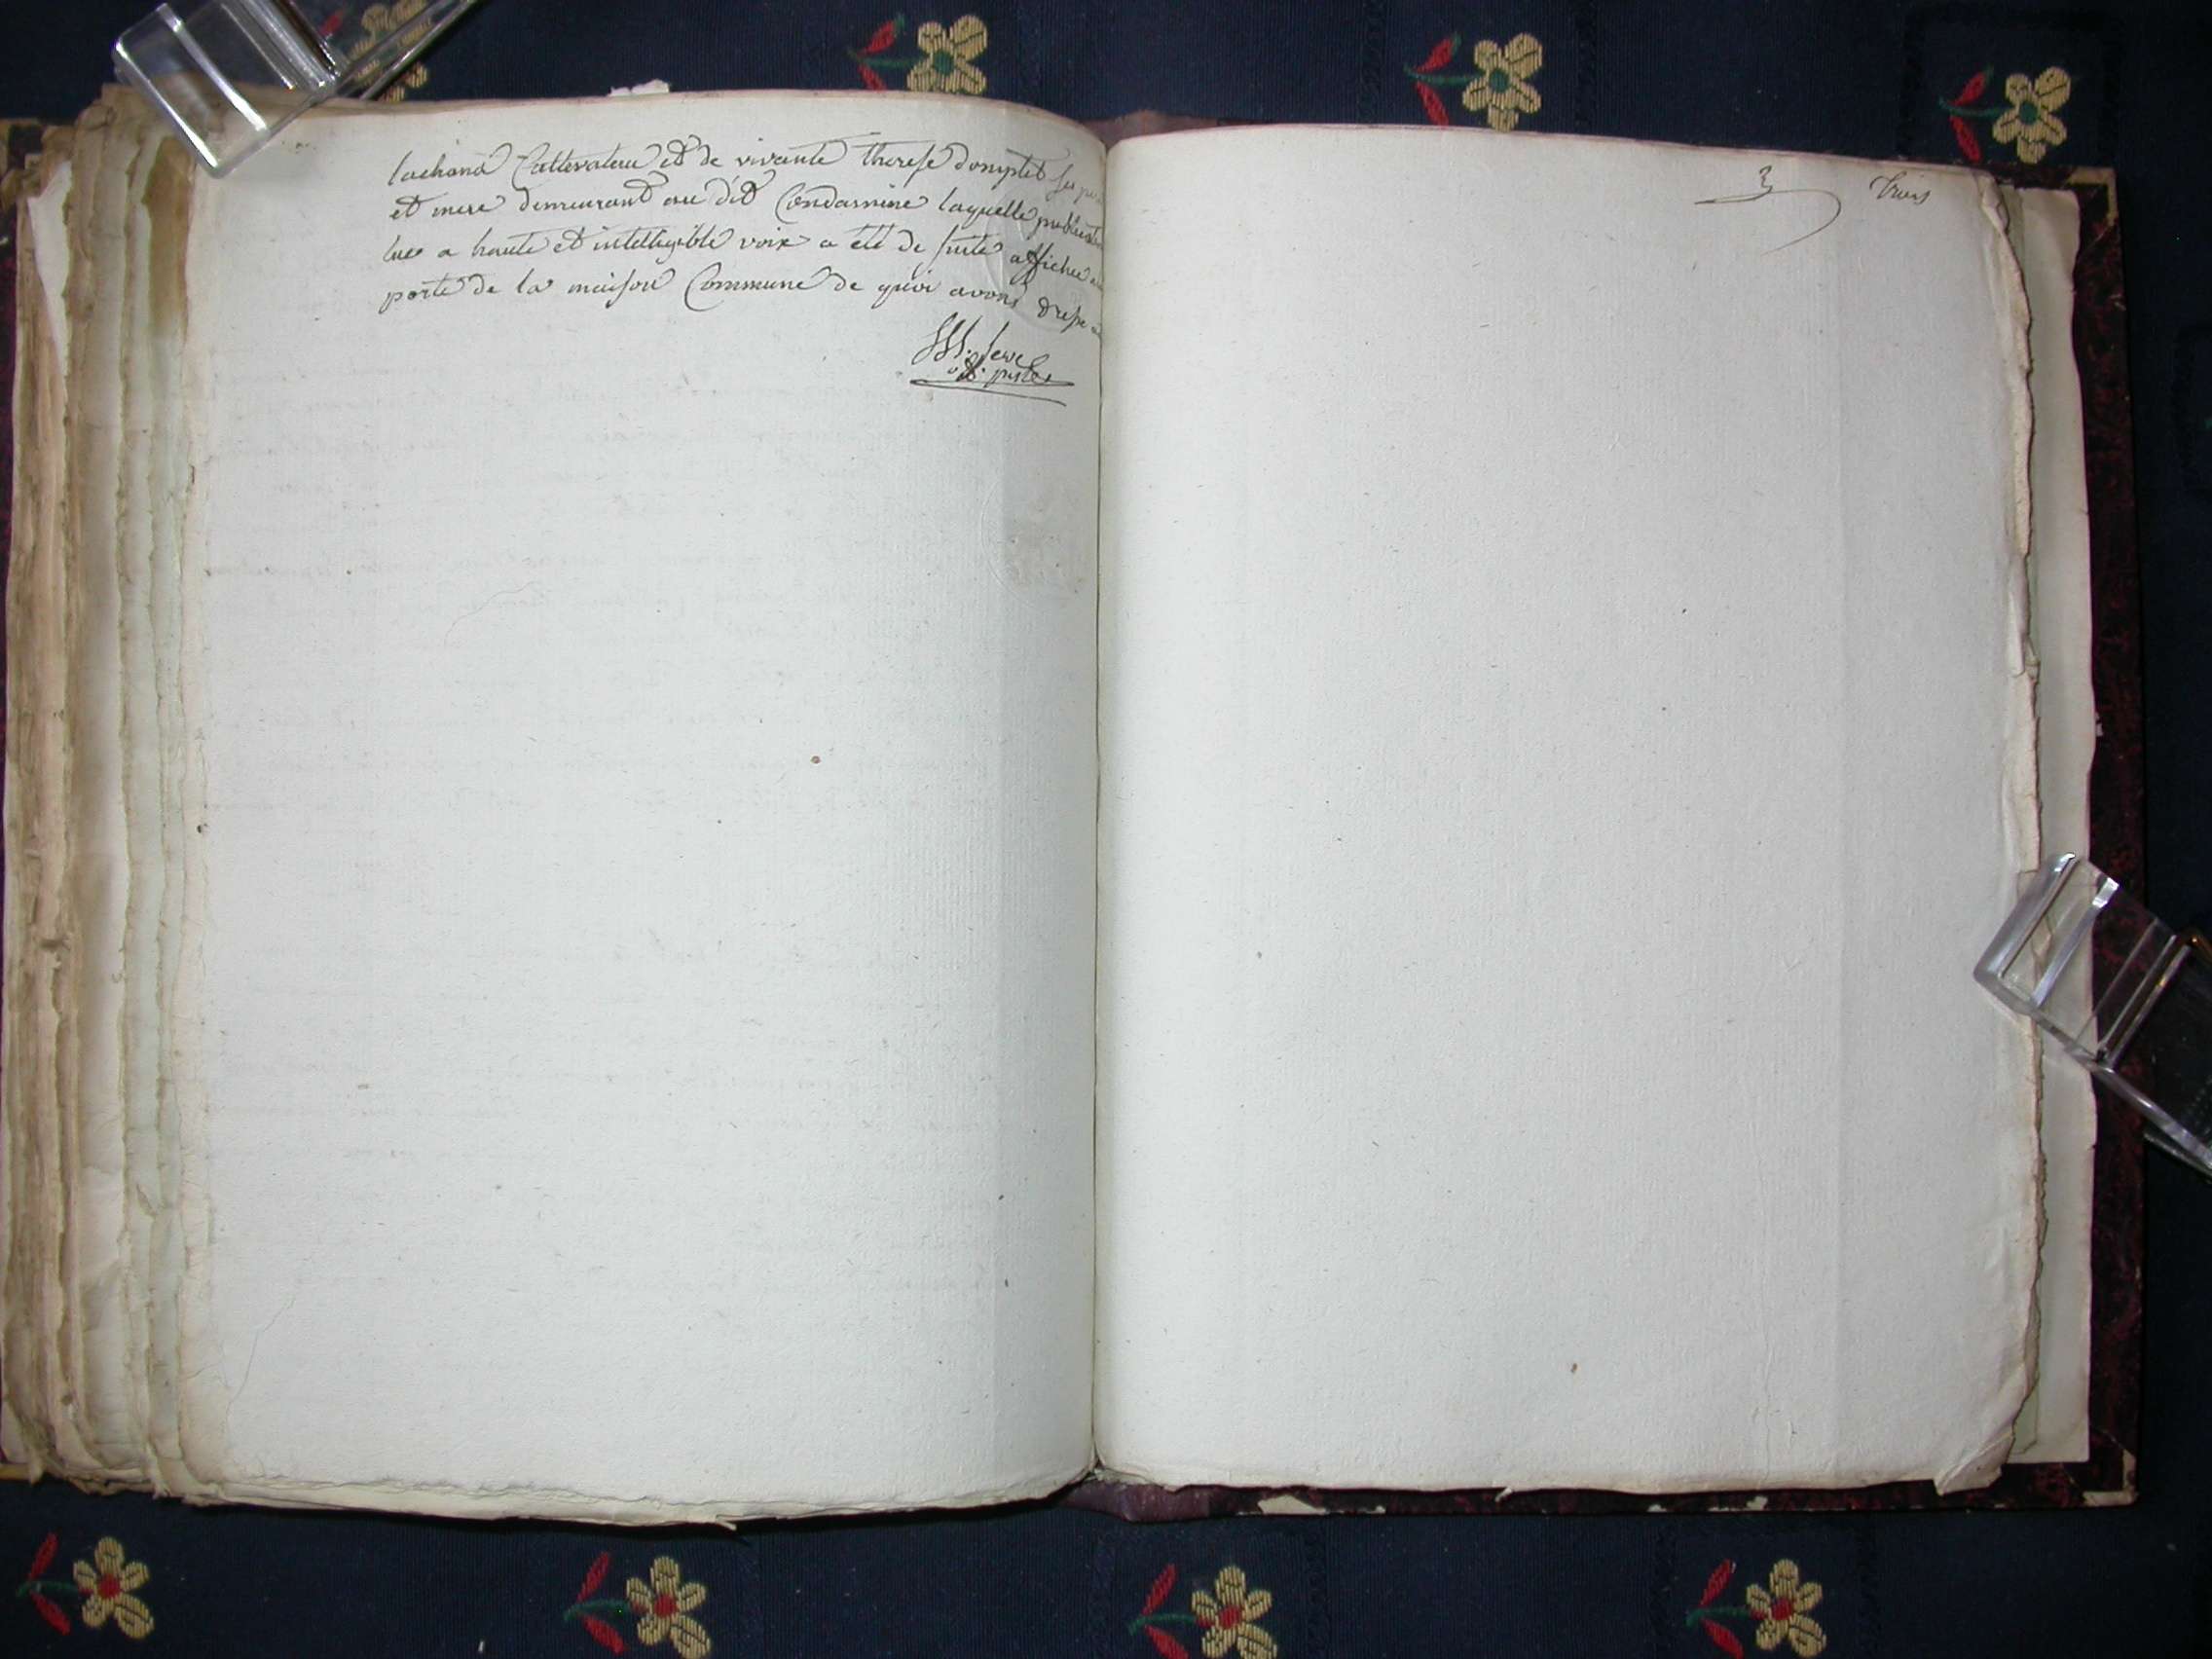 lachana Cultevateur et de vivante therese domptet ses
et mere demeurant au dit Condamine laquelle publication
lue a haute et intelligible voix a été de suite affichée
porte de la maison Commune de quoi avons dressé
3 Trois